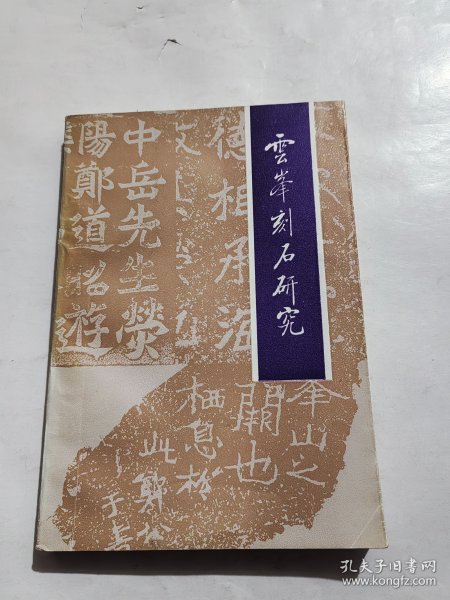 雲峯刻石研究
德相承海
文
中岳先生熒
陽鄭道昭遊
峯山之
闕也
栖息於
此
于書
孔夫子旧书网
www.kongfz.com